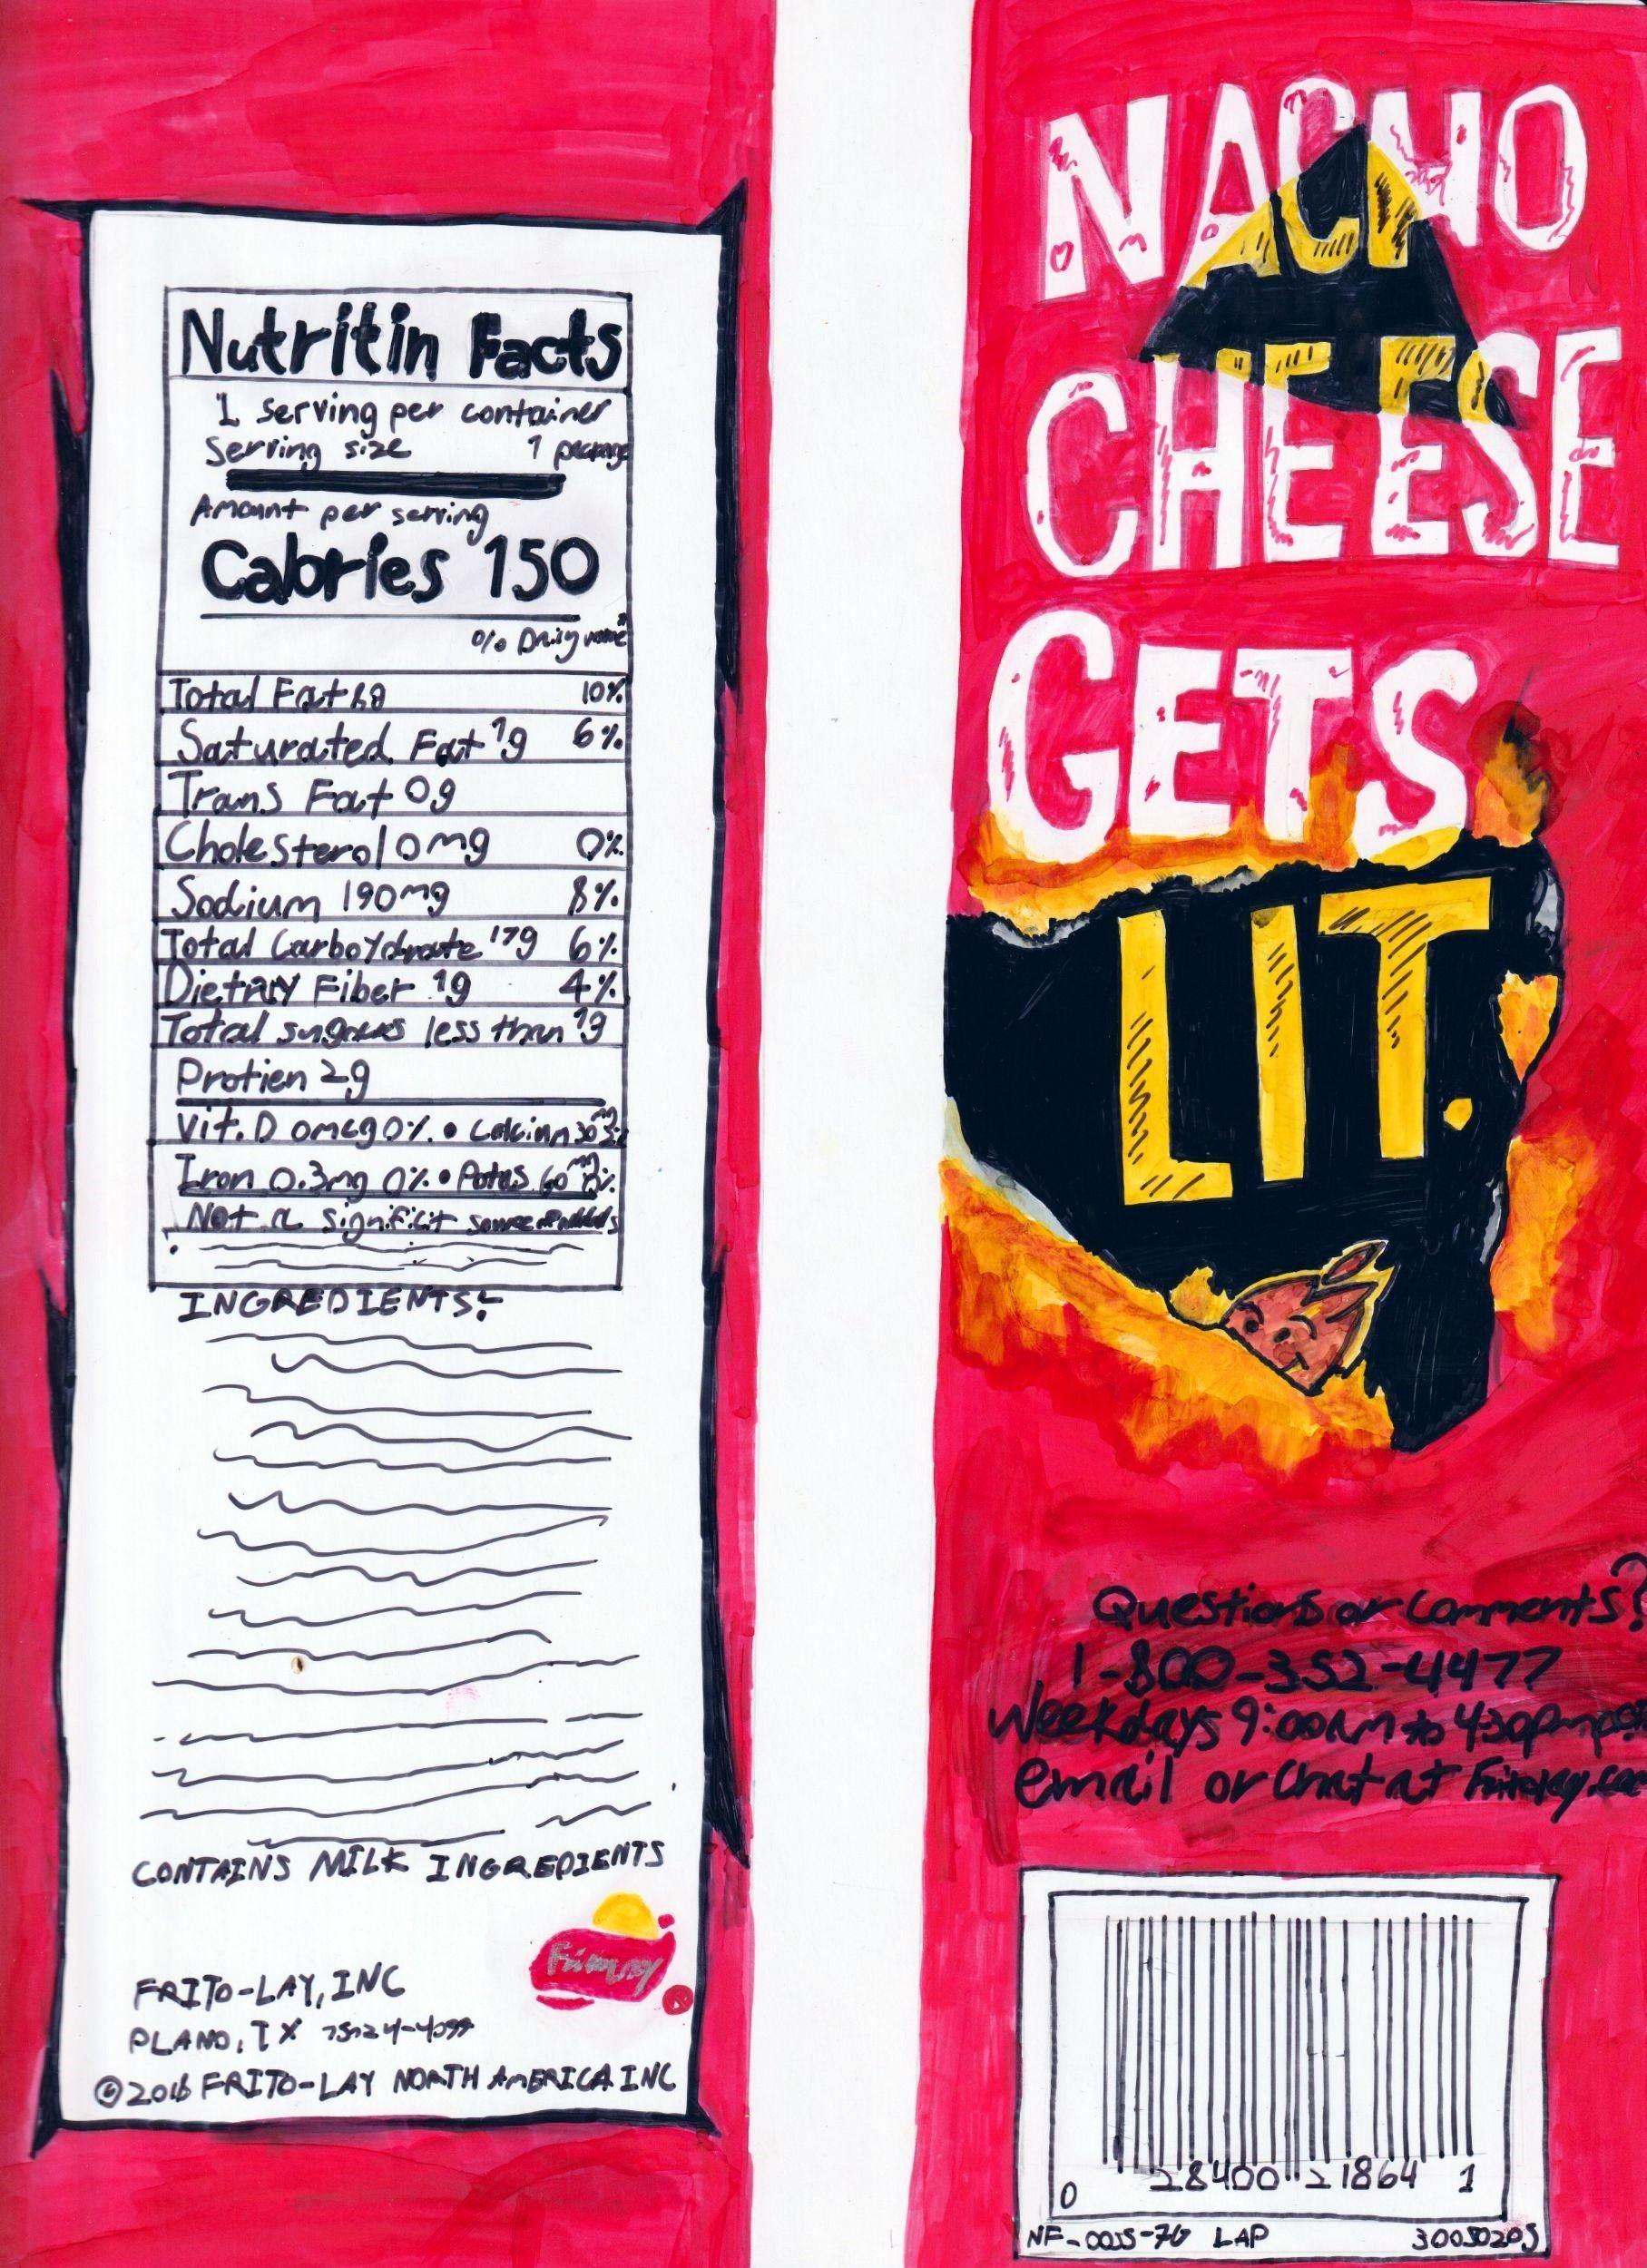 Nutritin Facts
1 serving per container
Serving size 1 package
Amount per serving
Calories 150
% Daily
Total Fat 8g 10%
Saturated Fat 1g 6%
Trans Fat 0g
Cholesterol 0mg 0%
Sodium 190mg 8%
Total Carboydrate 17g 6%
Dietary Fiber 1g 4%
Total sugars less than 1g
Protien 2g
Vit. D 0mcg 0% • Calcium 30mg
Iron 0.3mg 0% • Potas. 60mg
Not a significit source
INGREDIENTS:
CONTAINS MILK INGREDIENTS
FritoLay
FRITO-LAY, INC
PLANO, TX
©2016 FRITO-LAY NORTH AMERICA INC
NACHO
CHEESE
GETS
LIT.
Questions or Comments?
1-800-352-4477
Weekdays 9:00AM to 4:30pm
email or chat at Fritolay.com
0 28400 21864 1
LAP